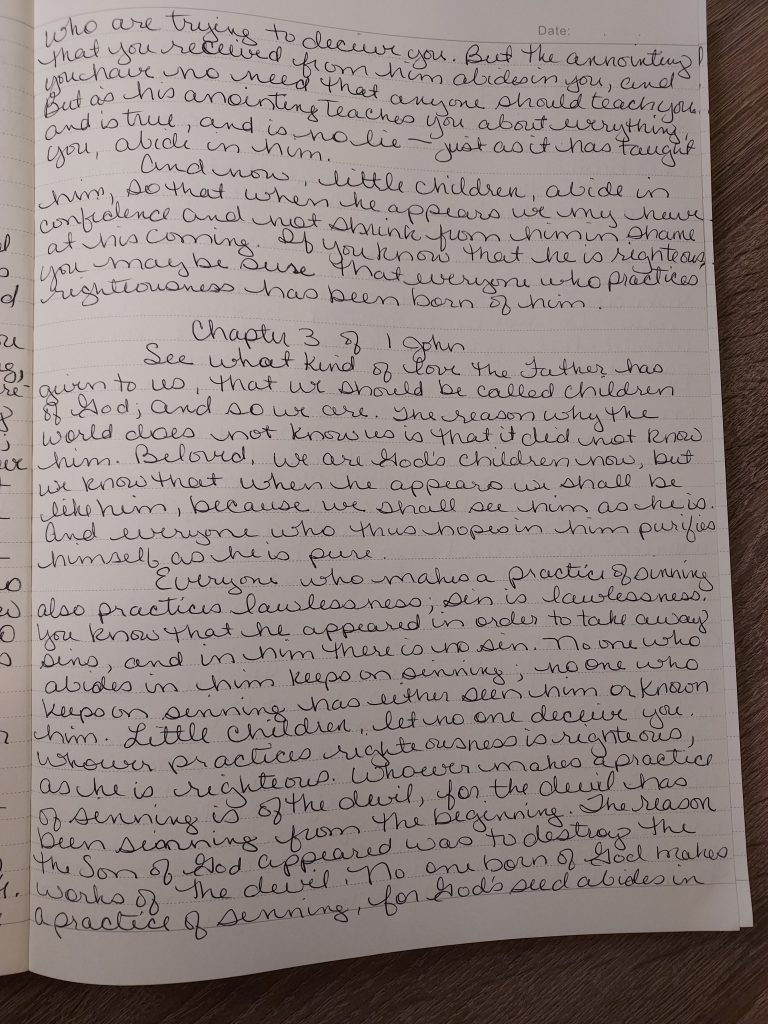 Date:
who are trying to deceive you. But the annointing
that you received from him abides in you, and
you have no need that anyone should teach you.
But as his anointing teaches you about everything,
and is true, and is no lie — just as it has taught
you, abide in him.
And now, little children, abide in
him, so that when he appears we my have
confidence and not shrink from him in shame
at his coming. If you know that he is righteous,
you may be sure that everyone who practices
righteousness has been born of him.
Chapter 3 of 1 John
See what kind of love the Father has
given to us, that we should be called children
of God; and so we are. The reason why the
world does not know us is that it did not know
him. Beloved, we are God's children now, but
we know that when he appears we shall be
like him, because we shall see him as he is.
And everyone who thus hopes in him purifies
himself as he is pure.
Everyone who makes a practice of sinning
also practices lawlessness; sin is lawlessness.
You know that he appeared in order to take away
sins, and in him there is no sin. No one who
abides in him keeps on sinning; no one who
keeps on sinning has either seen him or known
him. Little children, let no one deceive you.
Whoever practices righteousness is righteous,
as he is righteous. Whoever makes a practice
of sinning is of the devil, for the devil has
been sinning from the beginning. The reason
the Son of God appeared was to destroy the
works of the devil. No one born of God makes
a practice of sinning, for God's seed abides in